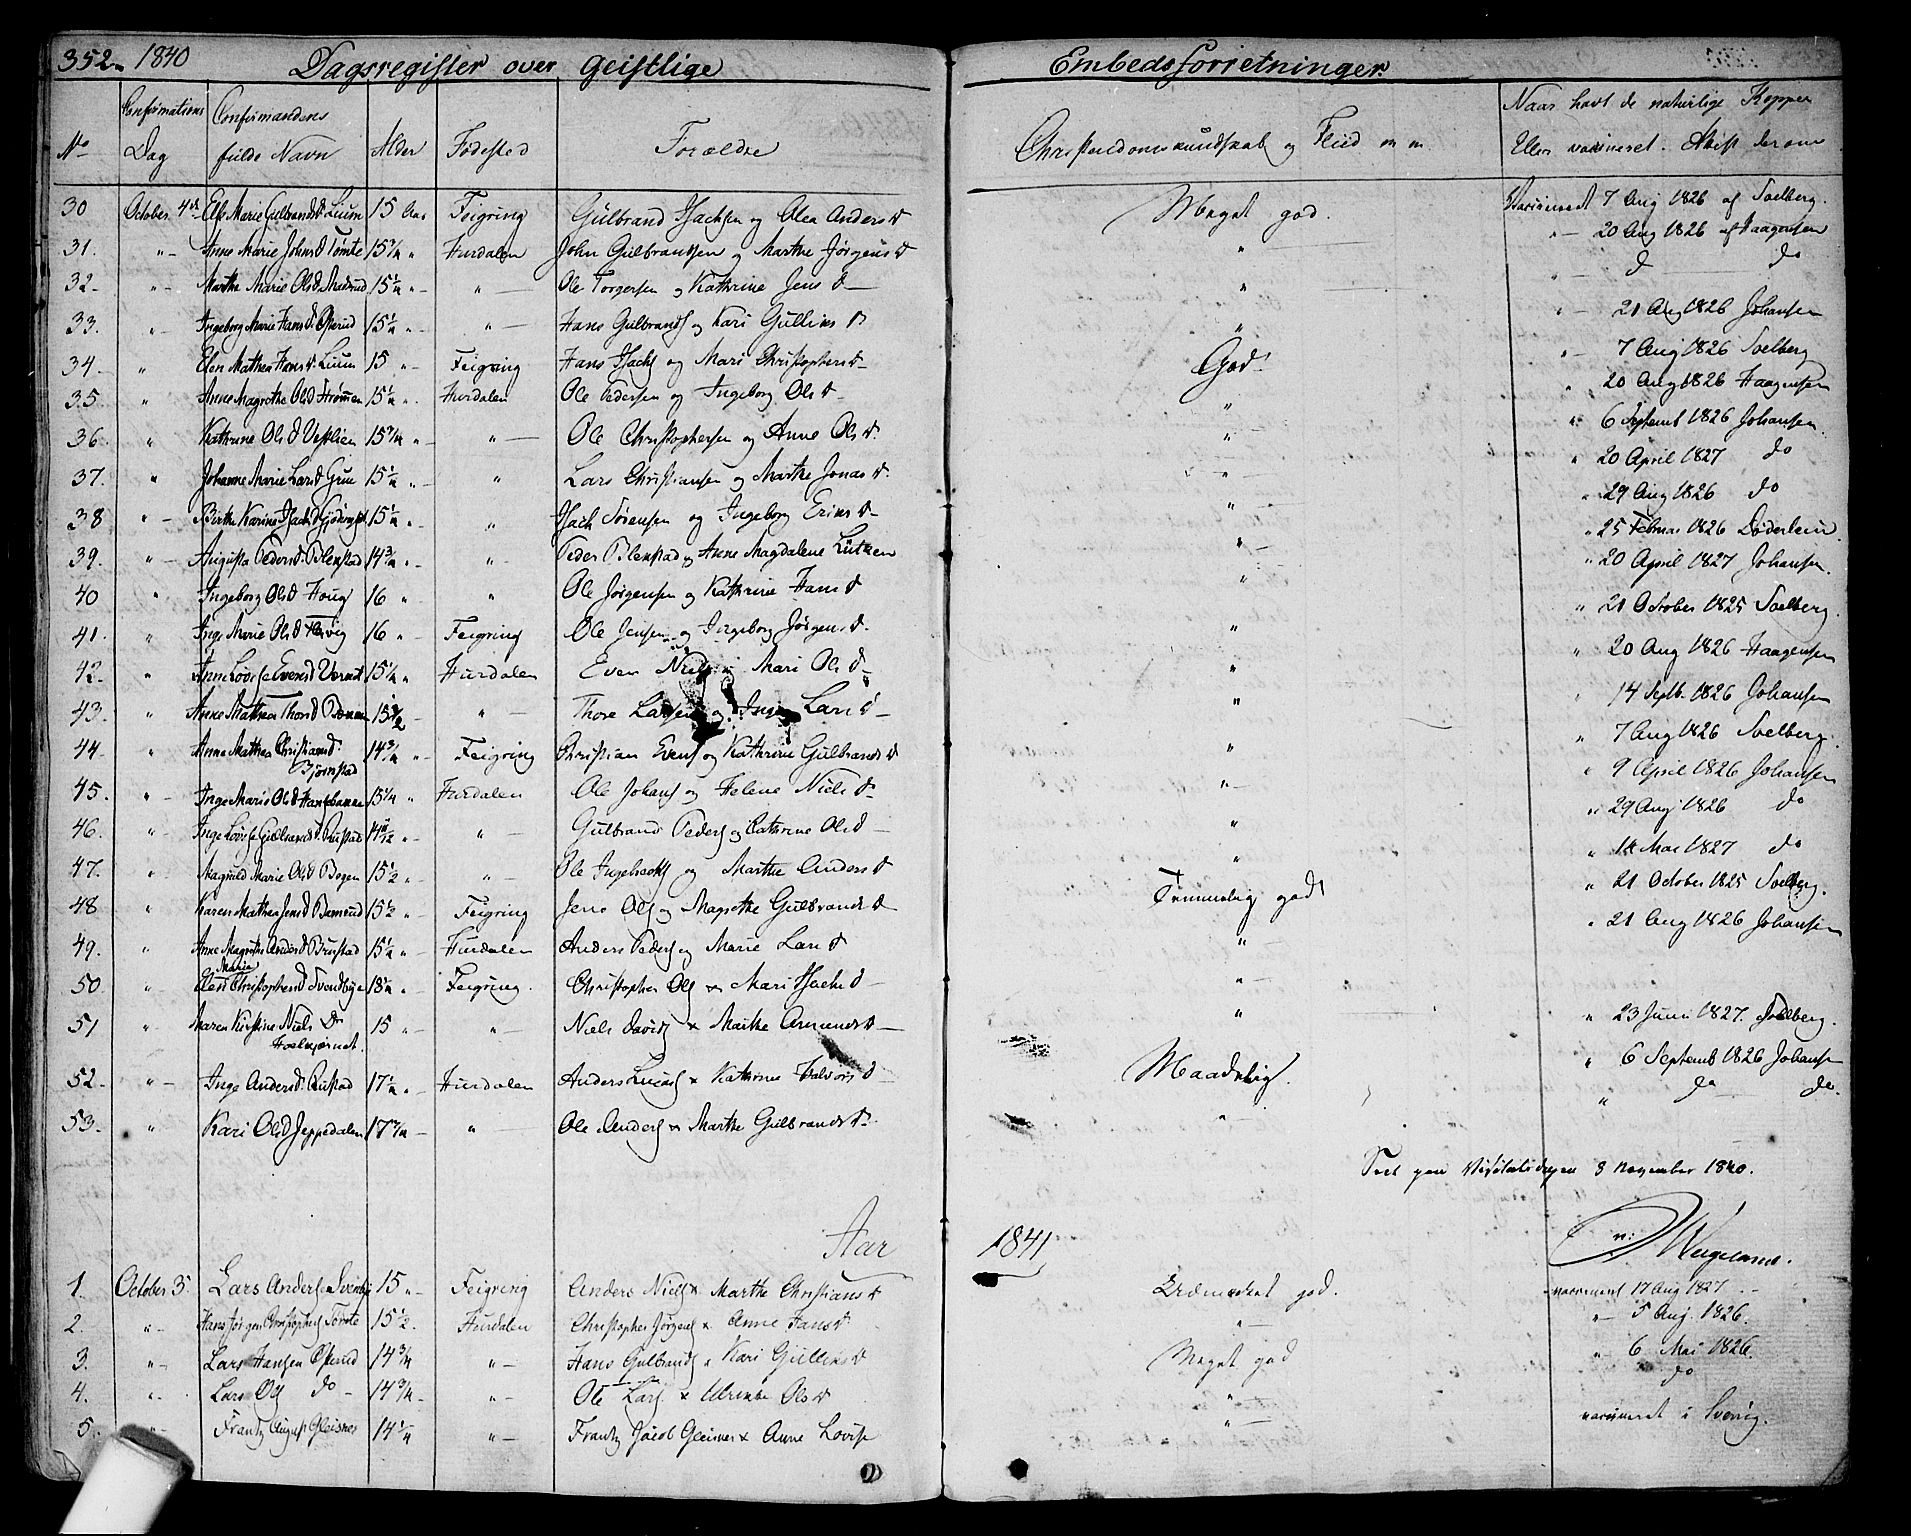 352. 1840 Dagsregister over Geistlige Embedsforretninger.
No
Confirmations Dag
Confirmandens fulde Navn
Alder
Fødested
Forældre
Christendomskundskab og Flid m m.
Naar havt de naturlige Kopper
Eller vaccineret. Attest derom
30 October 4de Else Marie Gulbrandsd. Lium 15 Aar Feigring Gulbrand Isachsen og Olea Andersd Meget god. Vaccineret 7 Aug 1826 af Soelberg.
31. " - Anne Marie Johnsd Tømte 15 3/4 " Hurdalen John Gulbrandsen og Marthe Jørgensd " " - 20 Aug 1826 af Haagensen
32 - " - Marthe Marie Olsd 15 1/4 " - " - Ole Torgersen og Kathrine Jensd - " " - d - do
33. " - Ingeborg Marie Hansd Østerud 15 1/4 " - " - Hans Gulbrands og Kari Gulliks D " " - 21 Aug 1826 Johansen
34. " Elen Mathea Hansd. Lium 15 " - Feigring Hans Isachs og Mari Christophersd - God. " - 7 Aug 1826 Soelberg
35 " Anne Magrethe Olsd Strømmen 15 1/2 " . Hurdalen Ole Pedersen og Ingeborg Olsd - " " 20 Aug 1826 Haagensen
36 " Kathrine Olsd Vestlien 15 3/4 " - " - Ole Christophersen og Anne Olsd. " " 6 Septemb 1826 Johansen.
37. " Johanne Marie Larsd Grue 15 1/2 " - " Lars Christiansen og Marthe Jonasd. " " 20 April 1827 do
38 " - Birthe Karine Isachsd 15 1/2 " . " Isach Sørensen og Ingeborg Eriksd - " " 29 Aug 1826 do
39. " - Augusta Pedersd. Bilenstad 14 3/4 " . " - Peder Bilenstad og Anne Magdalene Lütken " " 25 Februar 1826 Døderlein.
40 " Ingeborg Olsd Houg 16 " " Ole Jørgensen og Kathrine Hansd " " 20 April 1827 Johansen.
41. " Inge Marie Olsd 16 " Feigring Ole Jensen og Ingeborg Jørgensd. " " 21 October 1825 Soelberg.
42 - " Anne Lovise Evensd 15 1/2 " Hurdalen Even Niels Mari Olsd - " " 20 Aug 1826 Haagensen
43. " Anne Mathea Thorsd " - Thore Larsen og Larsd - " 14 Septb. 1826 Johansen
44. " Anne Mathea Christiansd. Bjørnstad 14 3/4 " - Feigring Christian Evens og Kathrine Gulbrandsd " " 7 Aug 1826 Soelberg.
45. " - Inge Marie Olsd 15 1/4 " Hurdalen Ole Johans og Helene Nielsd - " - " 9 April 1826 Johansen
46. " - Inge Lovise Gulbrandsd. Rustad " - " - Gulbrand Peders og Cathrine Olsd - " " 29 Aug 1826 do
47. " - Magnild Marie Olsd Bogen 15 1/2 " " - Ole og Marthe Andersd " " 14 Mai 1827 do
48 " Karen Mathea Jensd 15 1/2 " Feigring Jens Ols og Magrethe Gulbrandsd Temmelig godt " 21 October 1825 Soelberg.
49. " Anne Magrethe Andersd Brustad 15 1/2 " - Hurdalen Anders Peders og Marie Larsd " " 21 Aug 1826 Johansen
50. " Elen Maria Christophersd Svendbye 18 1/2 " . Feigring. Christopher Ols x Mari Isachsd - " -
51 " Maren Kirstine Niels Dr 15 " " - Niels Davids x Marthe Amundsd - " " 23 Juni 1827. Soelberg.
52. " - Inge Andersd. Rustad 17 1/2 " . Hurdalen Anders Lucas x Kathrine Halvorsd - Maadelig. " 6 Septemb 1826 Johansen
53. " Kari Olsd Jeppedalen 17 3/4 - " Ole Anders x Marthe Gulbrandsd. " - " do - do.
Seet paa Visitatsdagen 8 November 1840.
Aar 1841
1. October 3. Lars Andersen 15 " - Feigring Anders Niels x Marthe Christiansd Udmærket god. vaccineret 17 Aug 1827. -
2. " - Hans Jørgen Christophers Tømte 15 1/2. Hurdalen Christopher Jørgens x Anne Hansd. " - " - 5 Aug. 1826.
3. " - Lars Hansen Østerud 14 3/4 " - Hans Gulbrands " Kari Gulliksd Meget god " 6 Mai 1826.
4. " . Lars Ols do - 14 3/4 - " - Ole Lars x Ulrikke Olsd " - do
5. " - Frantz August Gleisner 14 1/4 " - Frantz Jacob Gleisner x Anne Lovise " - vaccineret i Sverig.